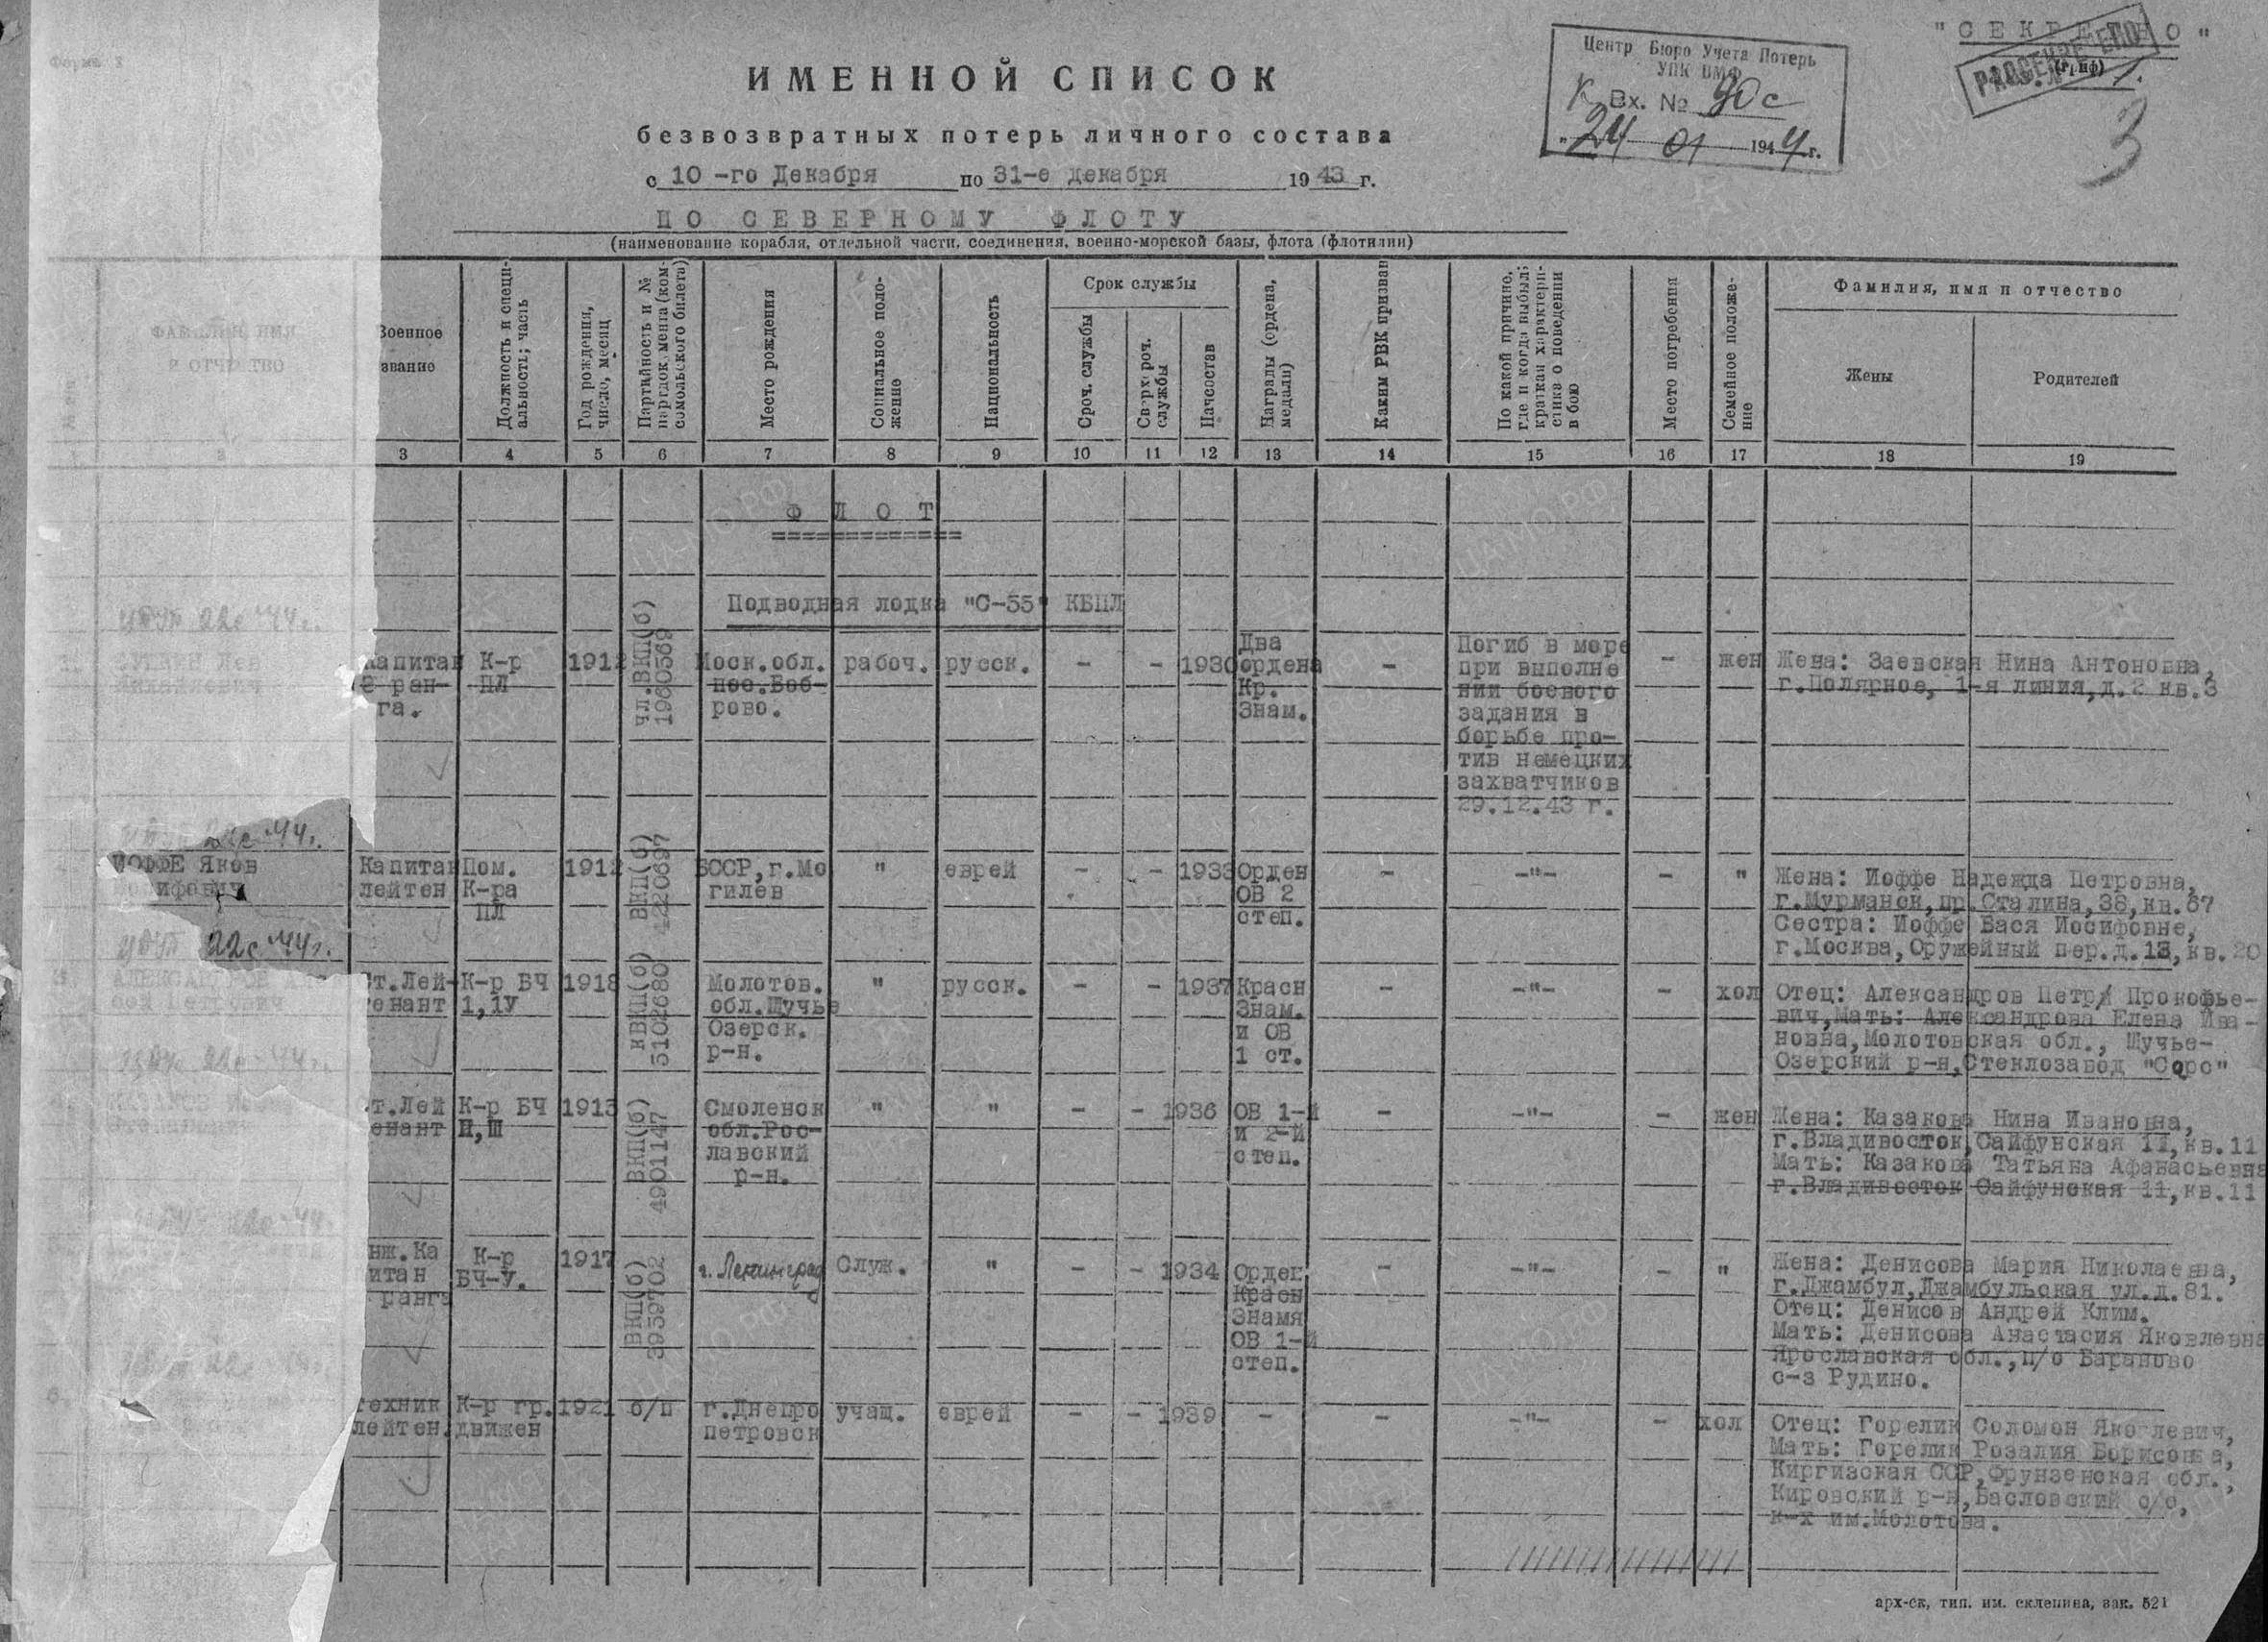 "СЕКРЕТНО"
(гриф)
РАССЕКРЕЧЕНО
Форма
3
Центр Бюро Учета Потерь
УПК ВМФ
Вх. № 90с
"24 01 1944 г.
ИМЕННОЙ СПИСОК
безвозвратных потерь личного состава
с 10-го Декабря по 31-е декабря 1943 г.
ПО СЕВЕРНОМУ ФЛОТУ
(наименование корабля, отдельной части, соединения, военно-морской базы, флота (флотилии)
ФАМИЛИЯ, ИМЯ
И ОТЧЕСТВО
Военное
звание
Должность и специ-
альность; часть
Год рождения,
число, месяц
Партийность и №
партдокумента (ком-
сомольского билета)
Место рождения
Социальное поло-
жение
Национальность
Срок службы
Сроч. службы
Сверхсроч.
службы
Начсостав
Награды (ордена,
медали)
Каким РВК призван
По какой причине,
где и когда выбыл;
краткая характери-
стика о поведении
в бою
Место погребения
Семейное положе-
ние
Фамилия, имя и отчество
Жены
Родителей
3 4 5 6 7 8 9 10 11 12 13 14 15 16 17 18 19
ФЛОТ
Подводная лодка "С-55" КБПЛ
22с-44г.
1. СУШКИН Лев
Михайлович
Капитан
3 ран-
га.
К-р
ПЛ
1912
чл.ВКП(б)
1980569
Моск.обл.
пос.Боб-
рово.
рабоч.
русск.
-
-
1930
Два
ордена
Кр.
Знам.
-
Погиб в море
при выполне
нии боевого
задания в
борьбе про-
тив немецких
захватчиков
29.12.43 г.
-
жен
Жена: Заевская Нина Антоновна,
г.Полярное, 1-я линия,д.2 кв.3
22с-44г.
ИОФФЕ Яков
Иосифович
Капитан
лейтен
Пом.
К-ра
ПЛ
1912
ВКП(б)
4220697
БССР,г.Мо
гилев
"
еврей
-
-
1933
Орден
ОВ 2
степ.
-
-"-
-
"
Жена: Иоффе Надежда Петровна,
г.Мурманск,пр.Сталина,38,кв.67
Сестра: Иоффе Вася Иосифовне,
г.Москва,Оружейный пер.д.13,кв.20
22с-44г.
3. АЛЕКСАНДРОВ
Петрович
Ст.Лей-
тенант
К-р БЧ
1,1У
1918
кВКП(б)
5102680
Молотов.
обл.Щучье
Озерск.
р-н.
"
русск.
-
-
1937
Красн
Знам.
и ОВ
1 ст.
-
-"-
-
хол
Отец: Александров Петр Прокофье-
вич,Мать: Александрова Елена Ива-
новна,Молотовская обл., Щучье-
Озерский р-н,Стеклозавод "Сарс"
22с-44г.
4. КАЗАКОВ
Ст.Лей
тенант
К-р БЧ
П,Ш
1913
ВКП(б)
4901147
Смоленск
обл.Рос-
лавский
р-н.
"
"
-
-
1936
ОВ 1-й
и 2-й
степ.
-
-"-
-
жен
Жена: Казакова Нина Ивановна,
г.Владивосток,Сайфунская 11,кв.11
Мать: Казакова Татьяна Афанасьевна
г.Владивосток Сайфунская 11,кв.11
22с-44г.
Инж.Ка
питан
ранга
К-р
БЧ-У.
1917
ВКП(б)
3959702
г. Ленинград
Служ.
"
-
-
1934
Орден
Красн
Знамя
ОВ 1-й
степ.
-
-"-
-
"
Жена: Денисова Мария Николаевна,
г.Джамбул,Джамбульская ул.д.81.
Отец: Денисов Андрей Клим.
Мать: Денисова Анастасия Яковлевна
Ярославская обл.,п/о Бараново
с-з Рудино.
22с-44г.
6.
техник
лейтен.
К-р гр.
движен
1921
б/п
г.Днепро
петровск
учащ.
еврей
-
-
1939
-
-
-"-
-
хол
Отец: Горелик Соломон Яковлевич,
Мать: Горелик Розалия Борисовна,
Киргизская ССР,Фрунзенская обл.,
Кировский р-н,Васловский с/с,
к-х им.Молотова.
арх-ск, тип. им. склепина, зак. 521